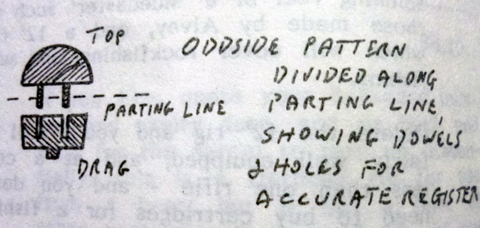 TOP
PARTING LINE
DRAG
ODDSIDE PATTERN
DIVIDED ALONG
PARTING LINE,
SHOWING DOWELS
& HOLES FOR
ACCURATE REGISTER